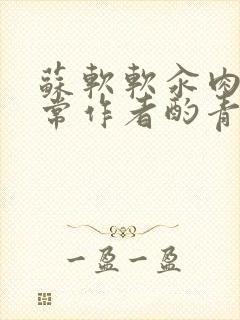 蘇軟軟汆肉
常作者酌青
一盈一盈